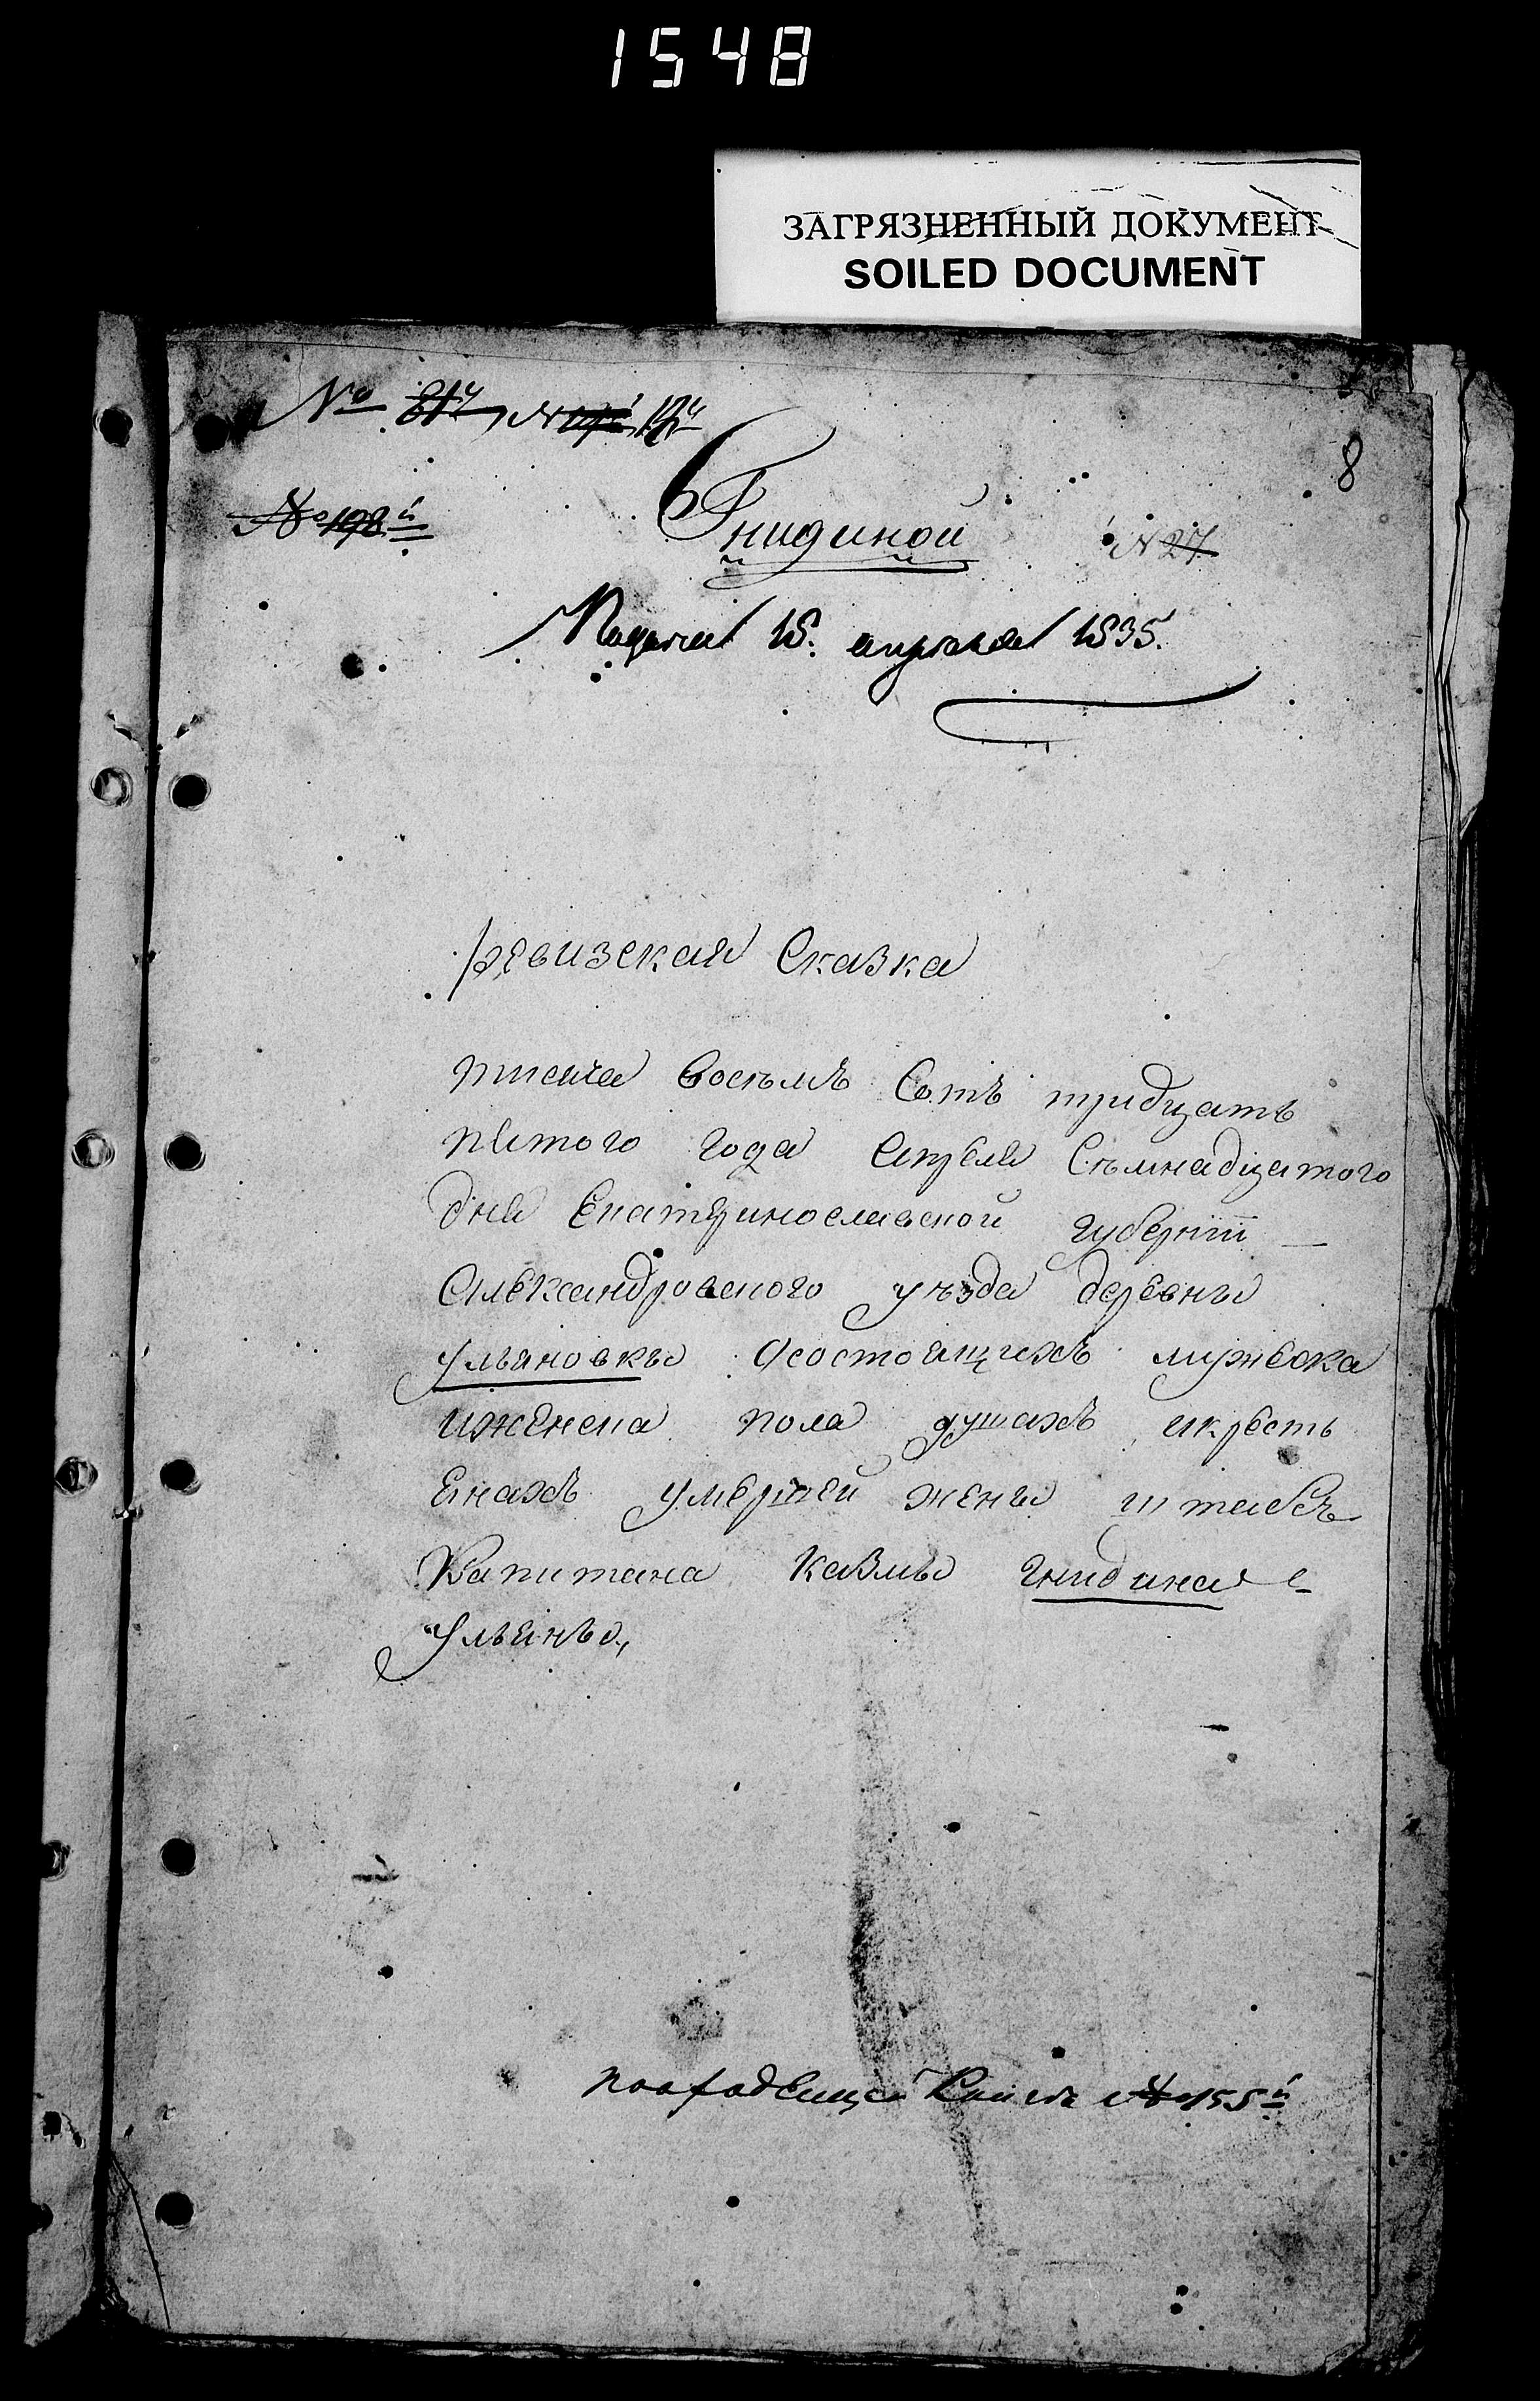 1548
ЗАГРЯЗНЕННЫЙ ДОКУМЕНТ
SOILED DOCUMENT
8
№ 198й
Гнидиной
N 27
Подана 18. апреля 1835.
ревизская Сказка
тисяча восъмъ Сотъ тридцать
пятого года апреля Съмнадцатого
дня Екатеринославской губернiи —
Александровского уъзда деревны
ульяновкы осостоящихъ мужеска
иженска пола душахъ икресть
янахъ умершей жены штабсъ
Капитана казмы гнидина
ульяны,
пооходящей Книге № 155й